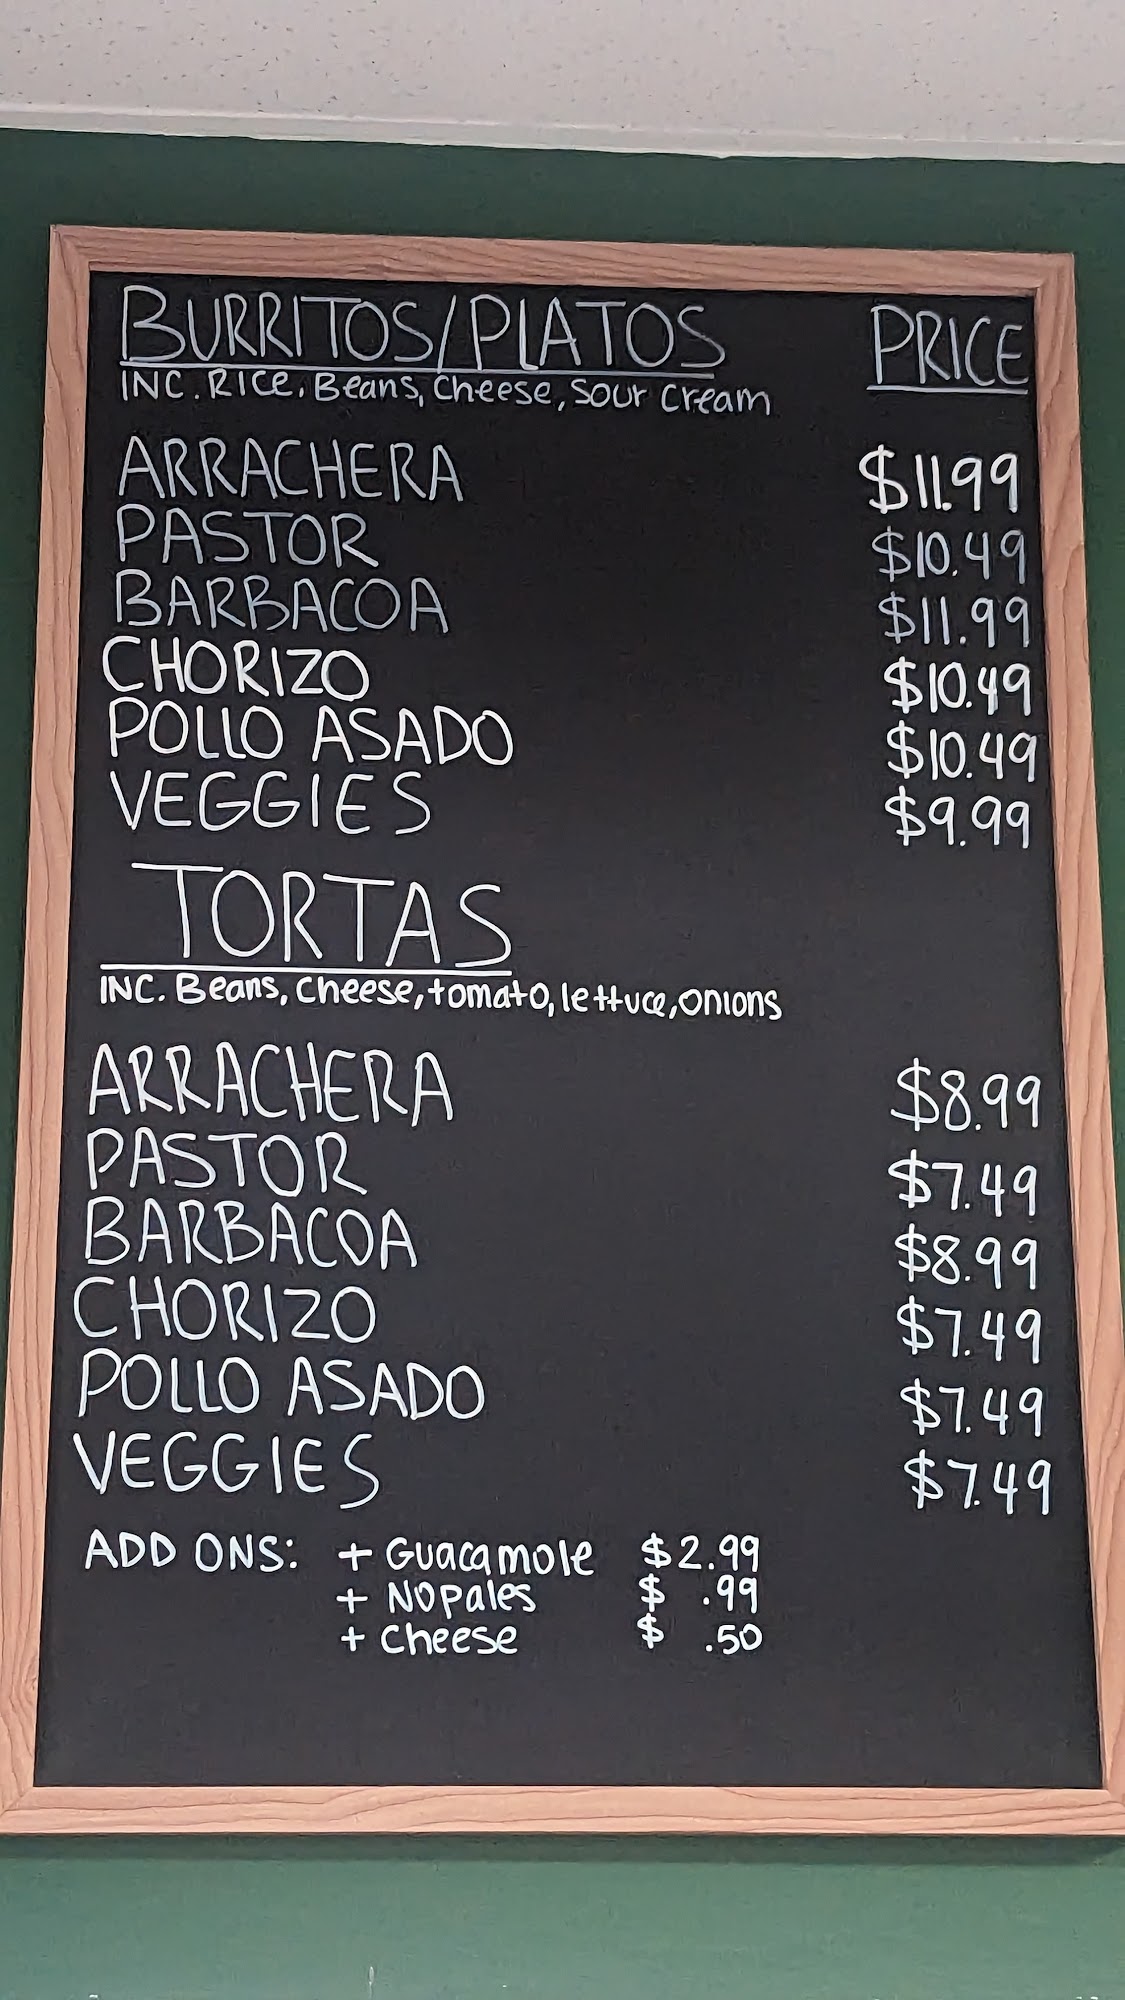 BURRITOS/PLATOS PRICE
INC. RICE, Beans, Cheese, Sour Cream
ARRACHERA $11.99
PASTOR $10.49
BARBACOA $11.99
CHORIZO $10.49
POLLO ASADO $10.49
VEGGIES $9.99
TORTAS
INC. Beans, Cheese, tomato, lettuce, onions
ARRACHERA $8.99
PASTOR $7.49
BARBACOA $8.99
CHORIZO $7.49
POLLO ASADO $7.49
VEGGIES $7.49
ADD ONS: + Guacamole $2.99
+ Nopales $ .99
+ Cheese $ .50